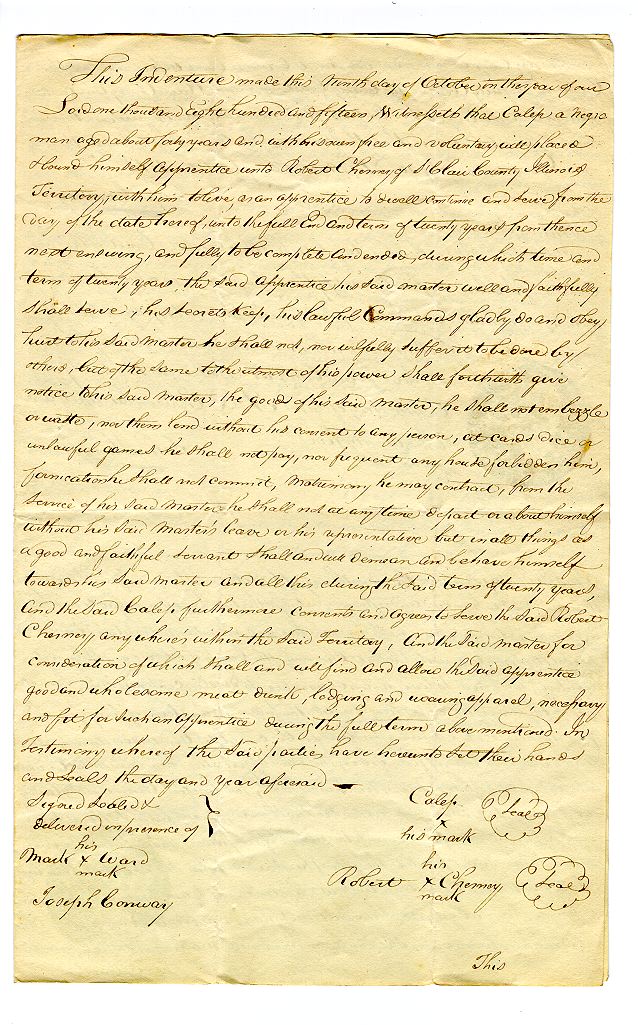 This Indenture made this Ninth day of October in the year of our
Lord one thousand eight hundred and fifteen, Witnesseth that Calep a Negro
man aged about forty years and with his own free and voluntary will placed
& bound himself apprentice unto Robert Chesney of St Clair County Illinois
Territory, with him to live as an apprentice to dwell continue and serve from the
day of the date hereof, unto the full End and term of twenty years from thence
next ensuing, and fully to be complete and ended, during which time and
term of twenty years the said apprentice his said master well and faithfully
shall serve, his secrets keep, his lawful Commands gladly do and obey
hurt to his said Master he shall not, nor wilfully suffer it to be done by
others, but of the same to the utmost of his power shall forthwith give
notice to his said Master, the goods of his said Master, he shall not embezzle
or waste, nor them lend without his consent to any person, at cards dice or
unlawful games he shall not pay, nor frequent any house forbidden him,
fornication he shall not commit, Matrimony he may contract, from the
service of his said Master he shall not at any time depart or about himself
without his said Master's leave or his representative but in all things as
a good and faithful servant shall and will demean and behave himself
towards his said master and all this during the said term of twenty years,
and the said Calep furthermore consents and agrees to serve the said Robert
Chesney any where's within the said Territory, And the said master for
consideration of which shall and will find and allow the said apprentice
good and wholesome meat drink, lodging and wearing apparel, necessary
and fit for such an apprentice during the full term above mentioned. In
Testimony whereof the said parties have hereunto set their hands
and seals the day and year aforesaid —
Signed sealed &
delivered in presence of
his
Mark x Ward
mark
Joseph Conway
Calep Seal
x
his mark
his
Robert x Chesney Seal
mark
This